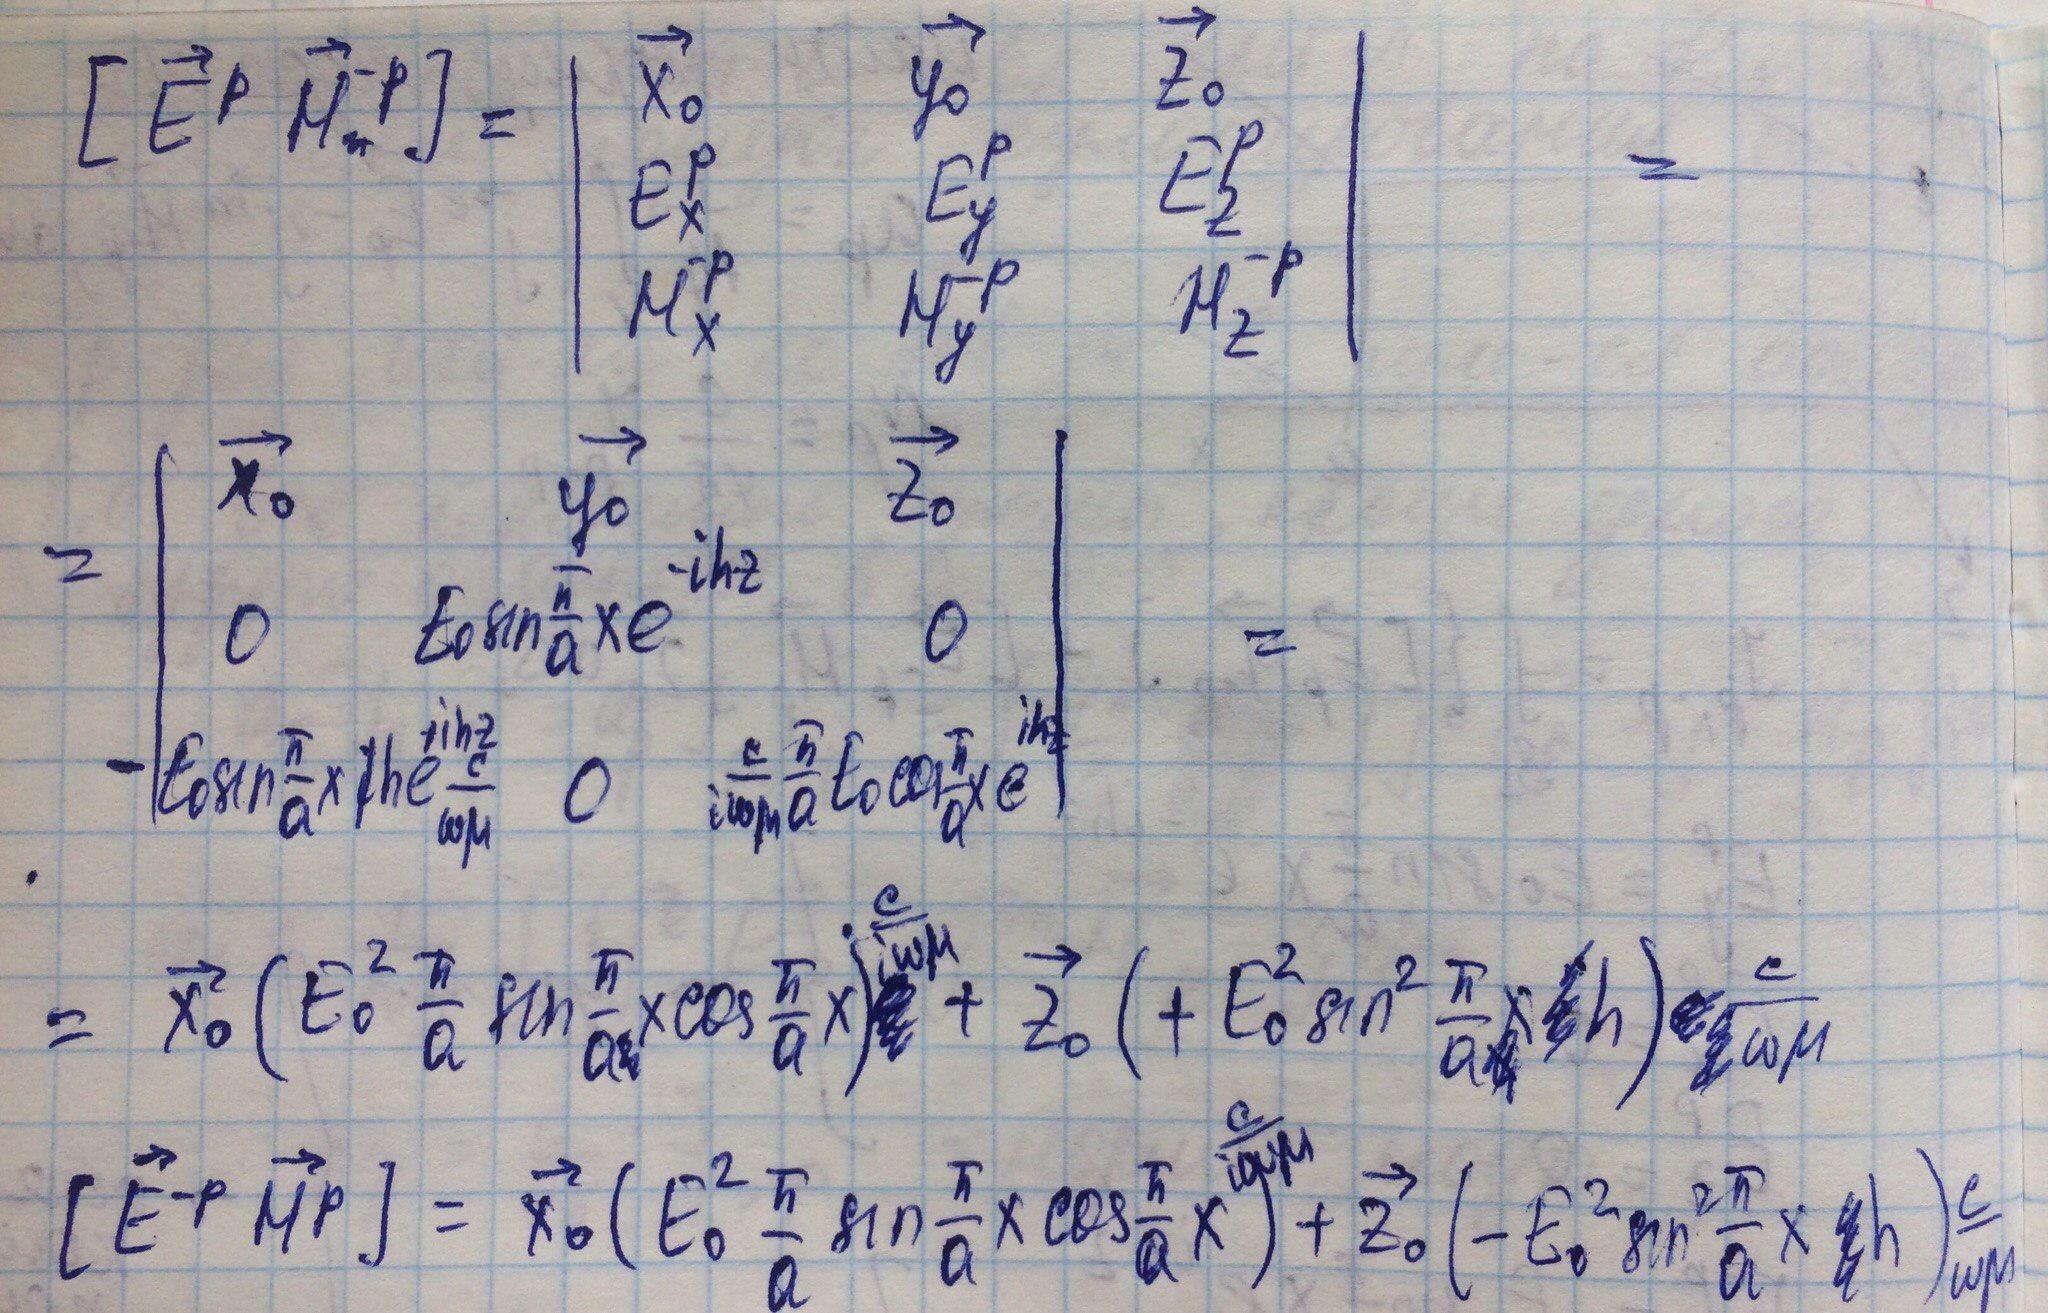 [E⃗^p H⃗^-p] = | x⃗₀ y⃗₀ z⃗₀ | =
E_x^p E_y^p E_z^p
H_x^-p H_y^-p H_z^-p
= | x⃗₀ y⃗₀ z⃗₀ | =
0 E₀ sin π/a x e^-ihz 0
-E₀ sin π/a x h e^+ihz c/ωμ 0 c/iωμ π/a E₀ cos π/a x e^ihz
= x⃗₀ (E₀² π/a sin π/a x cos π/a x) c/iωμ + z⃗₀ (+ E₀² sin² π/a x h) c/ωμ
[E⃗^-p H⃗^p] = x⃗₀ (E₀² π/a sin π/a x cos π/a x) c/iωμ + z⃗₀ (-E₀² sin² π/a x h) c/ωμ